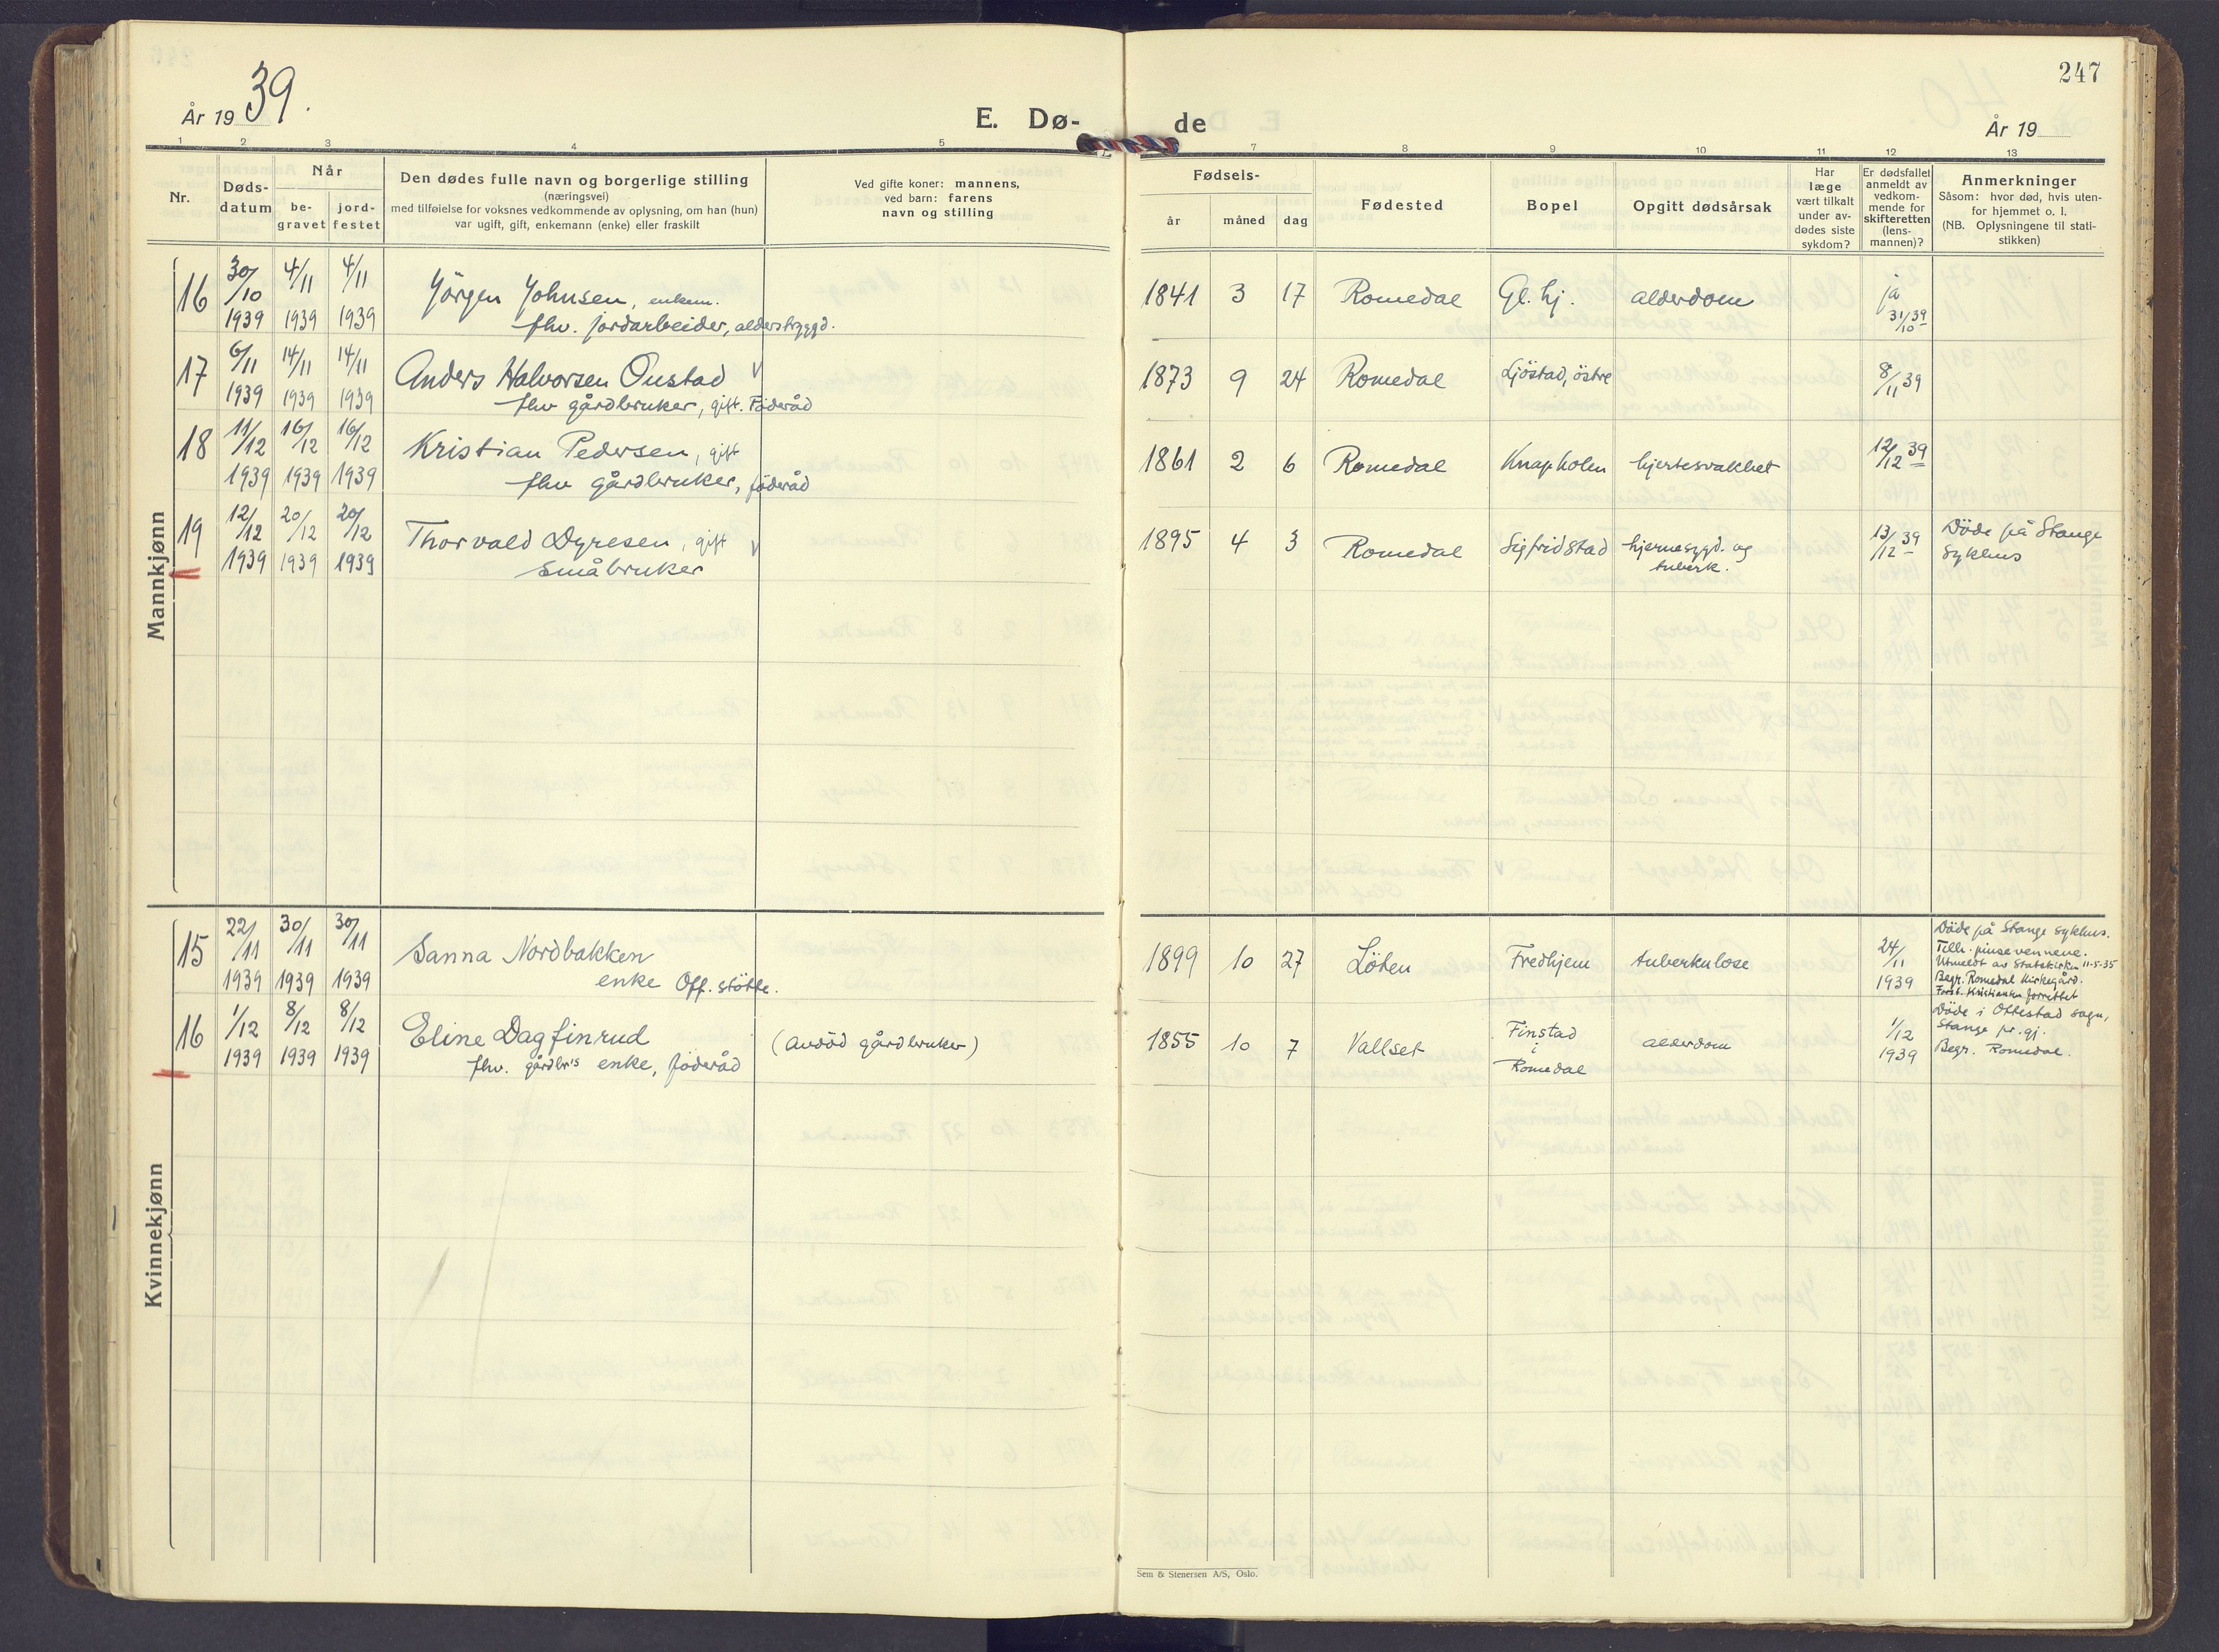 247
År 1939.
E. Dø-
de
År 19
1 2 3 4 5
7 8 9 10 11 12 13
Nr.
Døds-
datum
Når
be-
gravet
jord-
festet
Den dødes fulle navn og borgerlige stilling
(næringsvei)
med tilføielse for voksnes vedkommende av oplysning, om han (hun)
var ugift, gift, enkemann (enke) eller fraskilt
Ved gifte koner: mannens,
ved barn: farens
navn og stilling
Fødsels-
år måned dag
Fødested
Bopel
Opgitt dødsårsak
Har
læge
vært tilkalt
under av-
dødes siste
sykdom?
Er dødsfallet
anmeldt av
vedkom-
mende for
skifteretten
(lens-
mannen)?
Anmerkninger
Såsom: hvor død, hvis uten-
for hjemmet o. l.
(NB. Oplysningene til stati-
stikken)
Mannkjønn
16 30/10 4/11 4/11 Jörgen Johnsen, enkem.
1939 1939 1939 fhv. jordarbeider, alderstrygd.
1841 3 17 Romedal Gl. hj. alderdom ja
31/10 39
17 6/11 14/11 14/11 Anders Halvorsen Oustad v
1939 1939 1939 fhv gårdbruker, gift. Föderåd
1873 9 24 Romedal Ljöstad, östre 8/11 39
18 11/12 16/12 16/12 Kristian Pedersen, gift
1939 1939 1939 fhv gårdbruker, föderåd
1861 2 6 Romedal Knapholen hjertesvakhet 12/12 39
19 12/12 20/12 20/12 Thorvald Dyresen, gift v
1939 1939 1939 småbruker
1895 4 3 Romedal Sigfridstad hjernesygd. og
tuberk.
13/12 39 Döde på Stange
sykhus
Kvinnekjønn
15 22/11 30/11 30/11 Sanna Nordbakken
1939 1939 1939 enke Off. stötte.
1899 10 27 Löten Fredhjem tuberkulose 24/11
1939
Döde på Stange sykhus.
Tilh. pinsevennene.
Utmeldt av Statskirken 11-5-35
Begr. Romedal Kirkegård.
Forst. Kristiansen forrettet
16 1/12 8/12 8/12 Eline Dagfinrud (avdöd gårdbruker)
1939 1939 1939 fhv. gårdbr's enke, föderåd
1855 10 7 Vallset Finstad
i
Romedal
alderdom 1/12
1939
Döde i Ottestad sogn,
Stange pr. gj.
Begr. Romedal.
Sem & Stenersen A/S, Oslo.